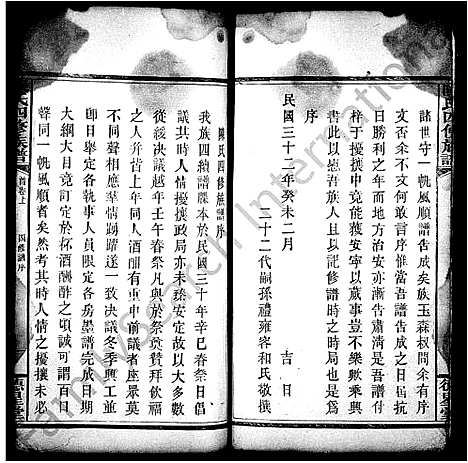 諸世守一帆風順譜告成矣族玉森权問余有序
文否余不文何敢言序惟當吾譜告成之日屆抗
日勝利之年而地方治安亦漸告肅清是吾族
梓于擾攘中竟能獲安寧以蕆事豈不樂歟乘興
書此以慰吾族人且以記修譜時之時局也是為
序
民國三十二年癸未二月 吉日
三十二代嗣孫禮雍容和氏敬撰
陳氏四修族譜序
我族四續譜牒本於民國三十年辛巳春祭日倡
議共時人情擾攘政局亦未臻安定故以大多數
從緩决議越年壬午春祭凡與於祭奠贊拜飲福
之人弁皆上年同人酒酣有重申前議者座眾莫
不同聲相應羣情踴躍遂一致决議冬季興工並
卽日舉定各執事人員限定各房墨譜完成日期
大綱大目竟訂定於杯酒酬酢之頃誠可謂百口
聲同一帆風順者矣然考其時人情之擾攘未必
氏四修族譜
首卷上
四修譜序
陳氏四修族譜